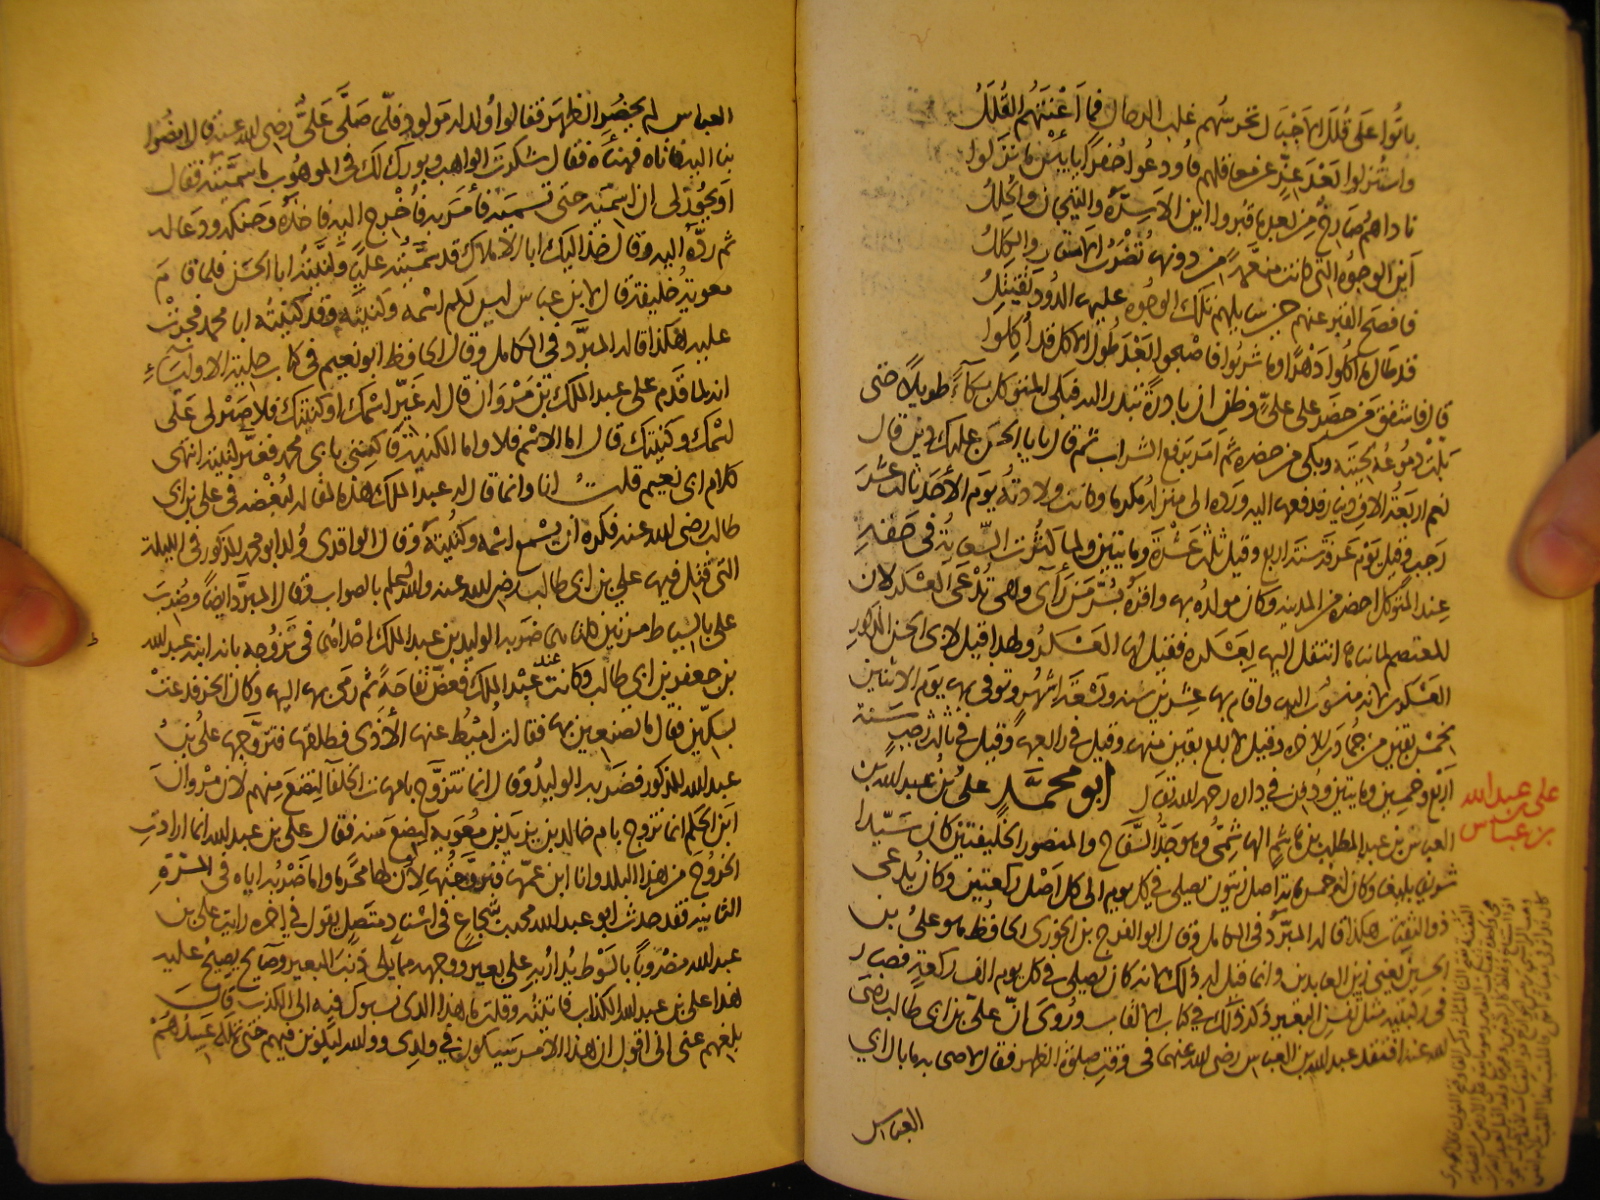 باتوا على قلل الاجبال تحرسهم غلب الرجال فما اغنتهم القلل
واستنزلوا بعد عز عن معاقلهم فاودعوا حفرا يا بئس ما نزلوا
ناداهم صارخ من بعد ما قبروا اين الاسرة والتيجان والحلل
اين الوجوه التي كانت منعمة من دونها تضرب الاستار والكلل
فافصح القبر عنهم حين سايلهم تلك الوجوه عليها الدود يقتتل
قد طال ما اكلوا دهرا وما شربوا فاصبحوا بعد طول الاكل قد اكلوا
قال فاشفق من حضر على علي وظن ان بادرة تبدر اليه فبكى المتوكل بكاء طويلا حتى
بلت دموعه لحيته وبكى من حضره ثم امر برفع الشراب ثم قال يا ابا الحسن عليك دين قال
نعم اربعة الاف دينار فدفعها اليه ورده الى منزله مكرما وكانت ولادته يوم الاحد ثالث عشر
رجب وقيل يوم عرفة سنة اربع وقيل ثلث عشرة ومايتين ولما كثرت السعاية في حقه
عند المتوكل احضره من المدينة وكان مولده بها واقره بسر من رآى وهي تدعى العسكر لان
المعتصم لما بناها انتقل اليها بعسكره فقيل لها العسكر ولهذا قيل لابي الحسن المذكور
العسكري لانه منسوب اليها واقام بها عشرين سنة وتسعة اشهر وتوفي بها يوم الاثنين
لخمس بقين من جمادى الاخرة وقيل لاربع بقين منها وقيل في رابعها وقيل في ثالث رجب سنة
اربع وخمسين ومايتين ودفن في داره رحمه الله تعالى ابو محمد علي بن عبد الله بن
علي بن عبد الله
بن عباس
العباس بن عبد المطلب بن هاشم الهاشمي وهو جد السفاح والمنصور الخليفتين كان سيدا
شريفا بليغا وكان له خمس ماية اصل زيتون يصلي في كل يوم الى كل اصل ركعتين وكان يدعى
ذو الثفنات هكذا قاله المبرد في الكامل وقال ابو الفرج بن الجوزي الحافظ هو علي بن
الحسين يعني زين العابدين وانما قيل له ذلك لانه كان يصلي في كل يوم الف ركعة فصار
في ركبتيه مثل ثفن البعير ذكر ذلك في كتاب الالقاب وروى ان علي بن ابي طالب رضي
الله عنه افتقد عبد الله بن العباس رضي الله عنهما في وقت صلوة الظهر فقال لاصحابه ما بال ابي
العباس
العباس لم يحضر الظهر فقالوا ولد له مولود فلما صلى علي رضي الله عنه قال امضوا
بنا اليه فاتاه فهنأه فقال شكرت الواهب وبورك لك في الموهوب ما سميته فقال
او يجوز لي ان اسميه حتى تسميه فأمر به فأخرج اليه فاخذه وحنكه ودعا له
ثم رده اليه وقال خذ اليك ابا الاملاك قد سميته عليا وكنيته ابا الحسن فلما قام
معوية خليفة قال لابن عباس ليس لكم اسمه وكنيته وقد كنيته ابا محمد فجرت
عليه هكذا قاله المبرد في الكامل وقال الحافظ ابو نعيم في كتاب حلية الاولياء
انه لما قدم على عبد الملك بن مروان قال له غير اسمك او كنيتك فلا صبر لي على
اسمك وكنيتك قال اما الاسم فلا واما الكنية فاكتني بابي محمد فغير كنيته انتهى
كلام ابي نعيم قلت انا وانما قال له عبد الملك هذه المقالة لبغضه في علي بن ابي
طالب رضي الله عنه فكره ان يسمع اسمه وكنيته وقال الواقدي ولد ابو محمد المذكور في الليلة
التي قتل فيها علي بن ابي طالب رضي الله عنه والله اعلم بالصواب وقال المبرد ايضا وضرب
علي بالسياط مرتين كلتاهما ضربه الوليد بن عبد الملك احداهما في تزوجه بابنة ابنة عبد الله
بن جعفر بن ابي طالب وكانت عند عبد الملك فعض تفاحة ثم رمى بها اليها وكان ابخر فدعت
بسكين فقال ما تصنعين بها فقالت اميط عنها الاذى فطلقها فتزوجها علي بن
عبد الله المذكور فضربه الوليد وقال انما تتزوج بامهات الخلفا لتضع منهم لان مروان
ابن الحكم انما تزوج بام خالد بن يزيد بن معوية ليضع منه فقال علي بن عبد الله انما ارادت
الخروج من هذا البلد وانا ابن عمها فتزوجتها لاكون لها محرما واما ضربه اياه في المرة
الثانية فقد حدث ابو عبد الله محمد بن شجاع في اسناد متصل يقول في اخره رايت علي بن
عبد الله مضروبا بالسوط يدار به على بعير ووجهه مما يلي ذنب البعير وصايح يصيح عليه
هذا علي بن عبد الله الكذاب فاتيته وقلت ما هذا الذي نسبوك فيه الى الكذب قال
بلغهم عني اني اقول ان هذا الامر سيكون في ولدي ووالله ليكونن فيهم حتى تملكه عبيدهم